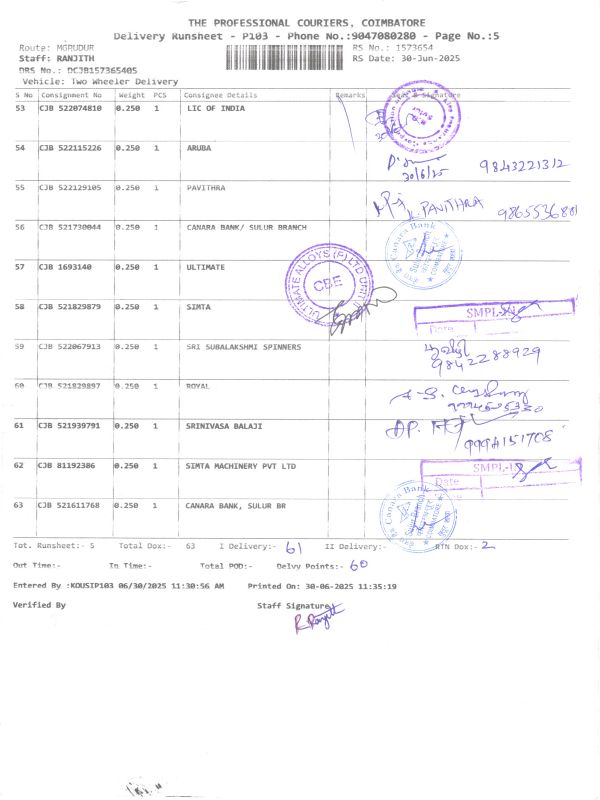 THE PROFESSIONAL COURIERS, COIMBATORE
Delivery Runsheet - P103 - Phone No.:9047080280 - Page No.:5
Route: MGRUDUR RS No.: 1573654
Staff: RANJITH RS Date: 30-Jun-2025
DRS No.: DCJB157365405
Vehicle: Two Wheeler Delivery
S No Consignment No Weight PCS Consignee Details Remarks Seal & Signature
53 CJB 522074810 0.250 1 LIC OF INDIA
54 CJB 522115226 0.250 1 ARUBA 30/6/25 9843221312
55 CJB 522129105 0.250 1 PAVITHRA K. PAVITHRA
56 CJB 521730044 0.250 1 CANARA BANK/ SULUR BRANCH Canara Bank Sulur
57 CJB 1693140 0.250 1 ULTIMATE ULTIMATE ALLOYS (P) LTD UNIT II CBE
58 CJB 521829879 0.250 1 SIMTA SMPL
Date
59 CJB 522067913 0.250 1 SRI SUBALAKSHMI SPINNERS 9842288929
60 CJB 521829897 0.250 1 ROYAL
61 CJB 521939791 0.250 1 SRINIVASA BALAJI
62 CJB 81192386 0.250 1 SIMTA MACHINERY PVT LTD SMPL
Date
63 CJB 521611768 0.250 1 CANARA BANK, SULUR BR Canara Bank Sulur Branch
Tot. Runsheet:- 5 Total Dox:- 63 I Delivery:- 61 II Delivery:- RTN Dox:- 2
Out Time:- In Time:- Total POD:- Delvy Points:- 60
Entered By :KOUSIP103 06/30/2025 11:30:56 AM Printed On: 30-06-2025 11:35:19
Verified By Staff Signature